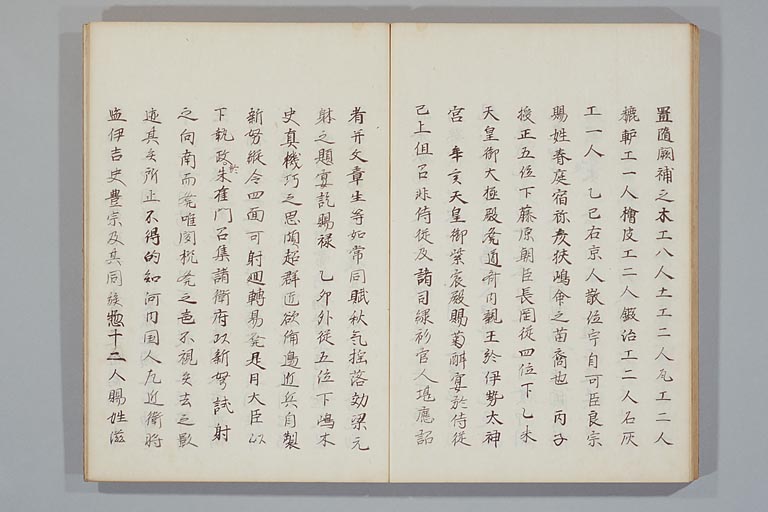 置隨闕補之木工八人土工二人瓦工二人
轆轤工一人檜皮工二人鍛冶工二人石灰
工一人　乙巳右京人散位宍自可臣良宗
賜姓春庭宿祢彦狭嶋命之苗裔也　丙子
授正五位下藤原朝臣長岡從四位下乙未
天皇御大極殿発遣斎内親王於伊勢太神
宮　辛亥天皇御紫宸殿賜菊酎宴於侍従
已上但召非侍従及諸司緑衫官人堪應詔
者并文章生等如常同賦秋气揺落効梁元
躰之題宴訖賜禄　乙卯外従五位下嶋木
史真機巧之思頗超群匠欲備邊迩兵自製
新弩縦令四面可射廻轉易発是月大臣以
下執政於朱雀門召集諸衛府以新弩試射
之向南而発唯聞機発之音不視矢去之影
迹其矢所止不得的知何内国人左近衛将
监伊吉史豊宗及其同族惣十二人賜姓滋